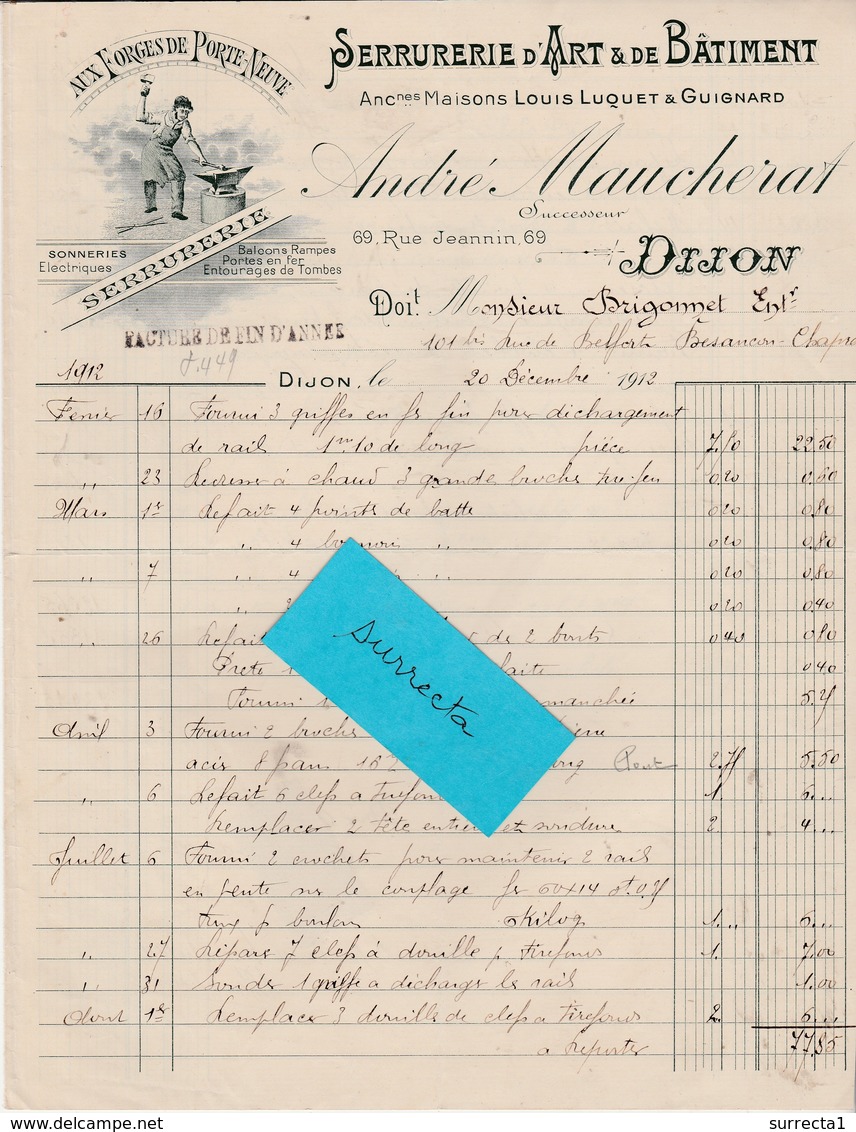 AUX FORGES DE PORTE-NEUVE
SERRURERIE D'ART & DE BÂTIMENT
Ancnes Maisons LOUIS LUQUET & GUIGNARD
André Maucherat
Successeur
69, Rue Jeannin, 69
DIJON
SONNERIES
Electriques
SERRURERIE
Balcons Rampes
Portes en fer
Entourages de Tombes
Doit Monsieur Brigonnet Entr
101 bis Rue de Belfort Besançon-Chapra
FACTURE DE FIN D'ANNEE
1912
DIJON, le 20 Décembre 1912
Fevrier 16 Fourni 3 griffes en fer fin pour dechargement
de rails 1m10 de long pièce 7,50 22.50
" 23 Redresser à chaud 3 grande broche 0.20 0.60
Mars 1er Refait 4 points de batte 0.20 0.80
" 4 " 0.20 0.80
" 7 " 4 " 0.20 0.80
" 2 0.20 0.40
" 26 Refait de 2 bouts 0.40 0.80
0.40
Fourni 1 manchée 5.25
Avril 3 Fourni 2 broches
acier 8 pans long 2.75 5.50
" 6 Refait 6 clefs a tirefonds 1. 6...
Remplacer 2 tête et soudure 2. 4...
Juillet 6 Fourni 2 crochets pour maintenir 2 rails
en pente sur le couplage fer 60x14
boulons Kilog 1... 6...
" 27 Réparé 7 clefs à douille p. tirefonds 1. 7.00
" 31 Souder 1 griffe a décharger les rails 1.00
Aout 1er Remplacer 3 douilles de clefs a tirefonds 2. 6...
a Reporter 77.85
surrecta
surrecta1
delcampe.net